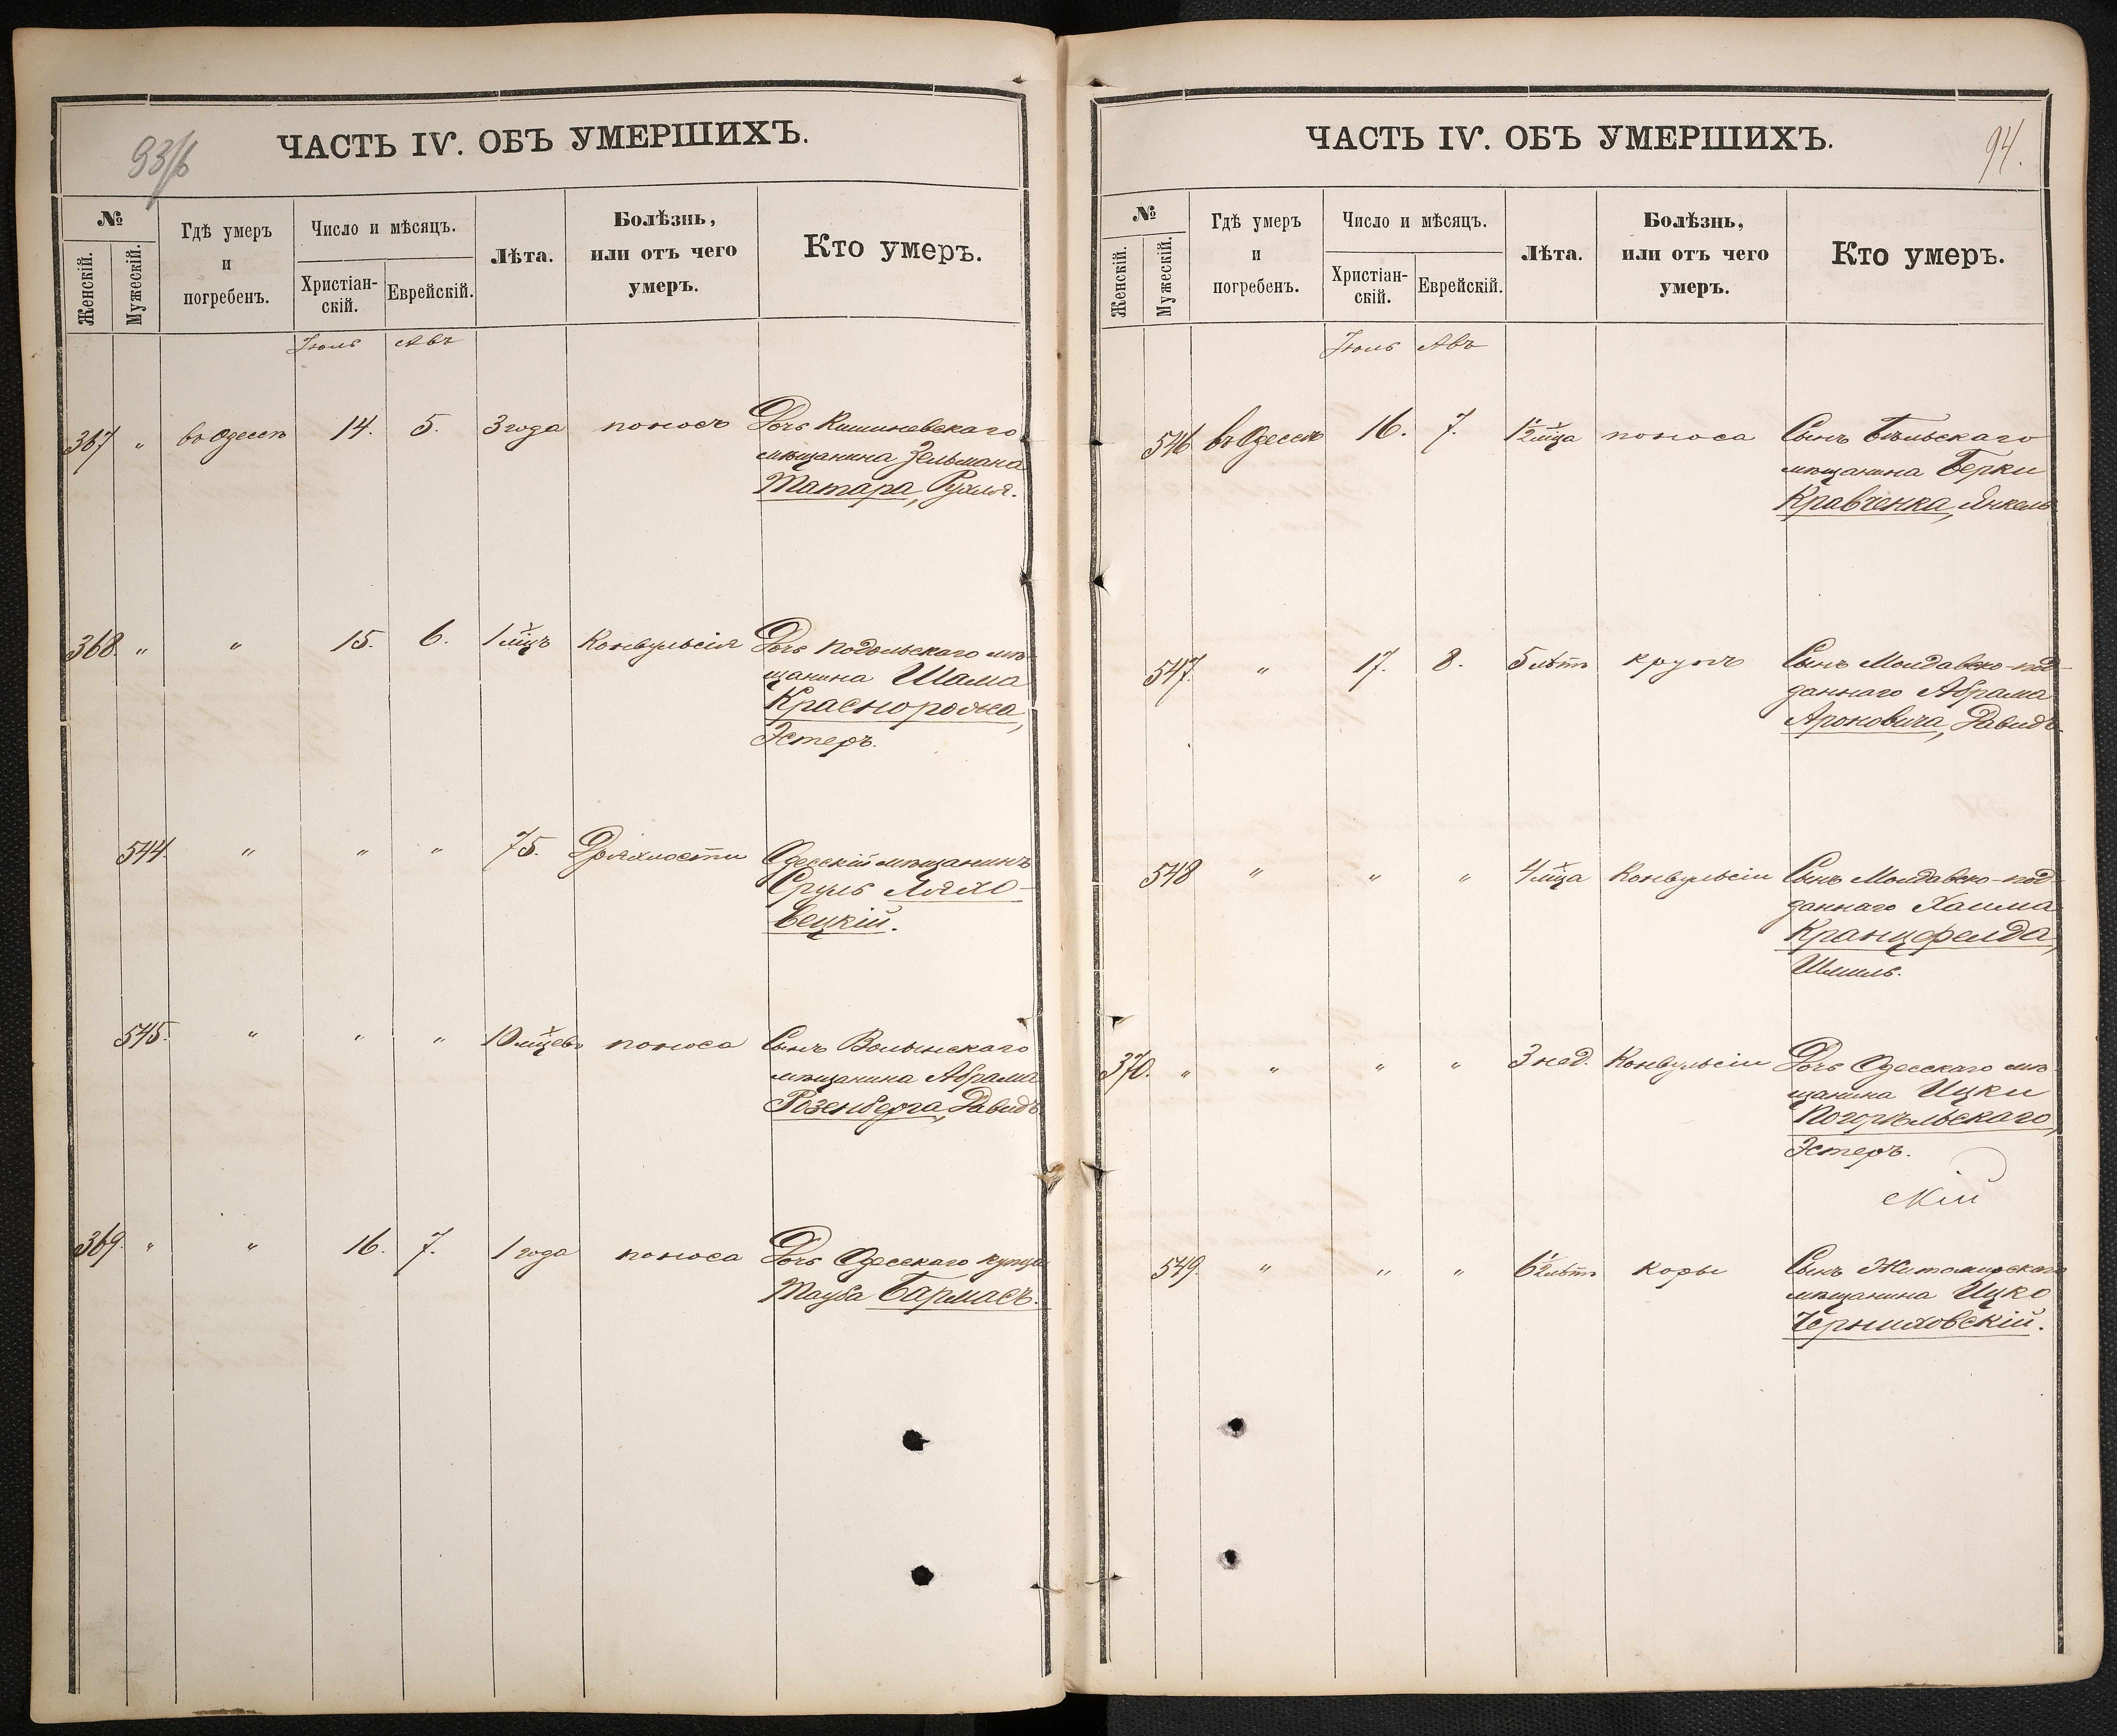 93/б
ЧАСТЬ IV. ОБЪ УМЕРШИХЪ.
№
Женскій.
Мужескій.
Гдѣ умеръ
и
погребенъ.
Число и мѣсяцъ.
Христіан-
скій.
Еврейскій.
Лѣта.
Болѣзнь,
или отъ чего
умеръ.
Кто умеръ.
Іюль Авъ
367 " въ Одессѣ 14. 5. 3 года поносъ Дочь Кишиневскаго
мѣщанина Зельмана
Татара, Рухля.
368. " " 15. 6. 1 мцъ Конвульсія Дочь Подольскаго мѣ-
щанина Шама
Красноротка,
Эстеръ.
544. " " " 75. Дряхлости Одесскій мѣщанинъ
Сруль Ляхо-
вецкій.
545. " " " 10 мцевъ поноса Сынъ Волынскаго
мѣщанина Абрама
Розенберга, Давидъ
369. " " 16. 7. 1 года поноса Дочь Одесскаго купца
Тауба Бармасъ.
94.
ЧАСТЬ IV. ОБЪ УМЕРШИХЪ.
№
Женскій.
Мужескій.
Гдѣ умеръ
и
погребенъ.
Число и мѣсяцъ.
Христіан-
скій.
Еврейскій.
Лѣта.
Болѣзнь,
или отъ чего
умеръ.
Кто умеръ.
Іюль Авъ
546 въ Одессѣ 16. 7. 1½ мца поноса Сынъ Бѣльскаго
мѣщанина Берки
Кравченка, Янкель
547. " 17. 8. 5 лѣтъ крупъ Сынъ Молдавско-под-
даннаго Абрама
Ароновича, Давидъ.
548 " " " 4 мца Конвульсіи Сынъ Молдавско-под-
даннаго Хаима
Кранцфелда,
Шмиль.
370. " " " " 3 нед. Конвульсіи Дочь Одесскаго мѣ-
щанина Ицки
Погорѣльскаго,
Эстеръ.
скій
549. " " " 6½ лѣтъ коры Сынъ Житомирскаго
мѣщанина Ицко
Черниховскій.